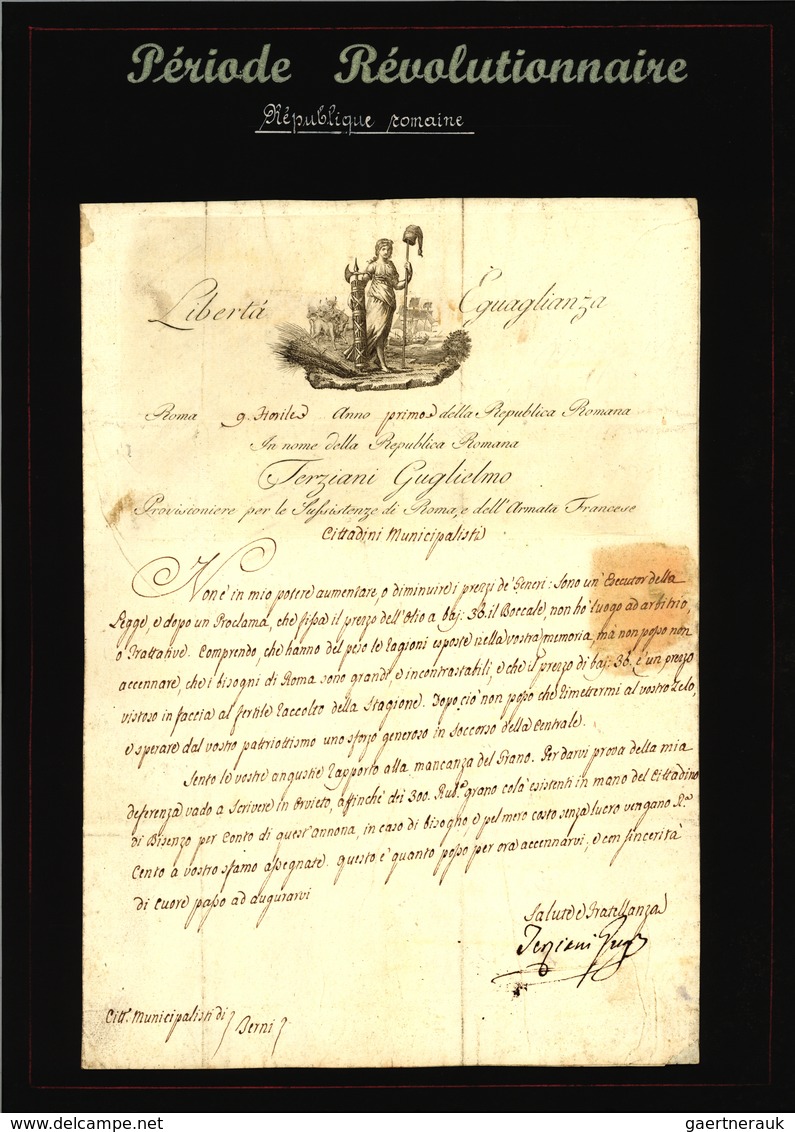 Période Révolutionnaire
République romaine
Libertá Eguaglianza
Roma 9. Florile Anno primo della Republica Romana
In nome della Republica Romana
Terziani Guglielmo
Provisioniere per le Sussistenze di Roma, e dell'Armata Francese
Cittadini Municipalisti
Non è in mio potere aumentare, o diminuire i prezzi de' Generi: Sono un' Esecutor della
Legge, e dopo un Proclama, che fissa il prezzo dell'Olio a baj: 36. il Boccale, non ho luogo ad arbitrio,
o Trattative. Comprendo, che hanno del peso le ragioni esposte nella vostra memoria, mà non posso non
accennare, che i bisogni di Roma sono grandi, e incontrastabili, e che il prezzo di baj: 36. è un prezzo
vistoso in faccia al fertile raccolto della Stagione. Dopo ciò non posso che rimettermi al vostro Zelo,
e sperare dal vostro patriottismo uno sforzo generoso in soccorso della Centrale.
Sento le vostre angustie rapporto alla mancanza del Grano. Per darvi prova della mia
deferenza vado a scrivere in Orvieto, affinchè dei 300. Rub. grano colà esistenti in mano del Cittadino
di Bisenzo per conto di quest'annona, in caso di bisogno, e pel mero costo senza lucro vengano R.a
Cento a vostro sfamo assegnate. Questo è quanto posso per ora accennarvi, e con sincerità
di cuore passo ad augurarvi
Salute e Fratellanza
Terziani Gug
Citt.i Municipalisti di
gaertnerauk